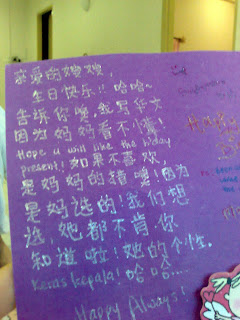 亲爱的嫂嫂,
生日快乐!! 哈哈~
告诉你哦,我写华文
因为妈妈看不懂!
Hope u will like the b'day
present! 如果不喜欢,
是妈妈的错噢!因为
是妈选的!我们想
选,她都不肯.你
知道啦!她的个性.
Keras kepala! 哈哈....
Happy Always!